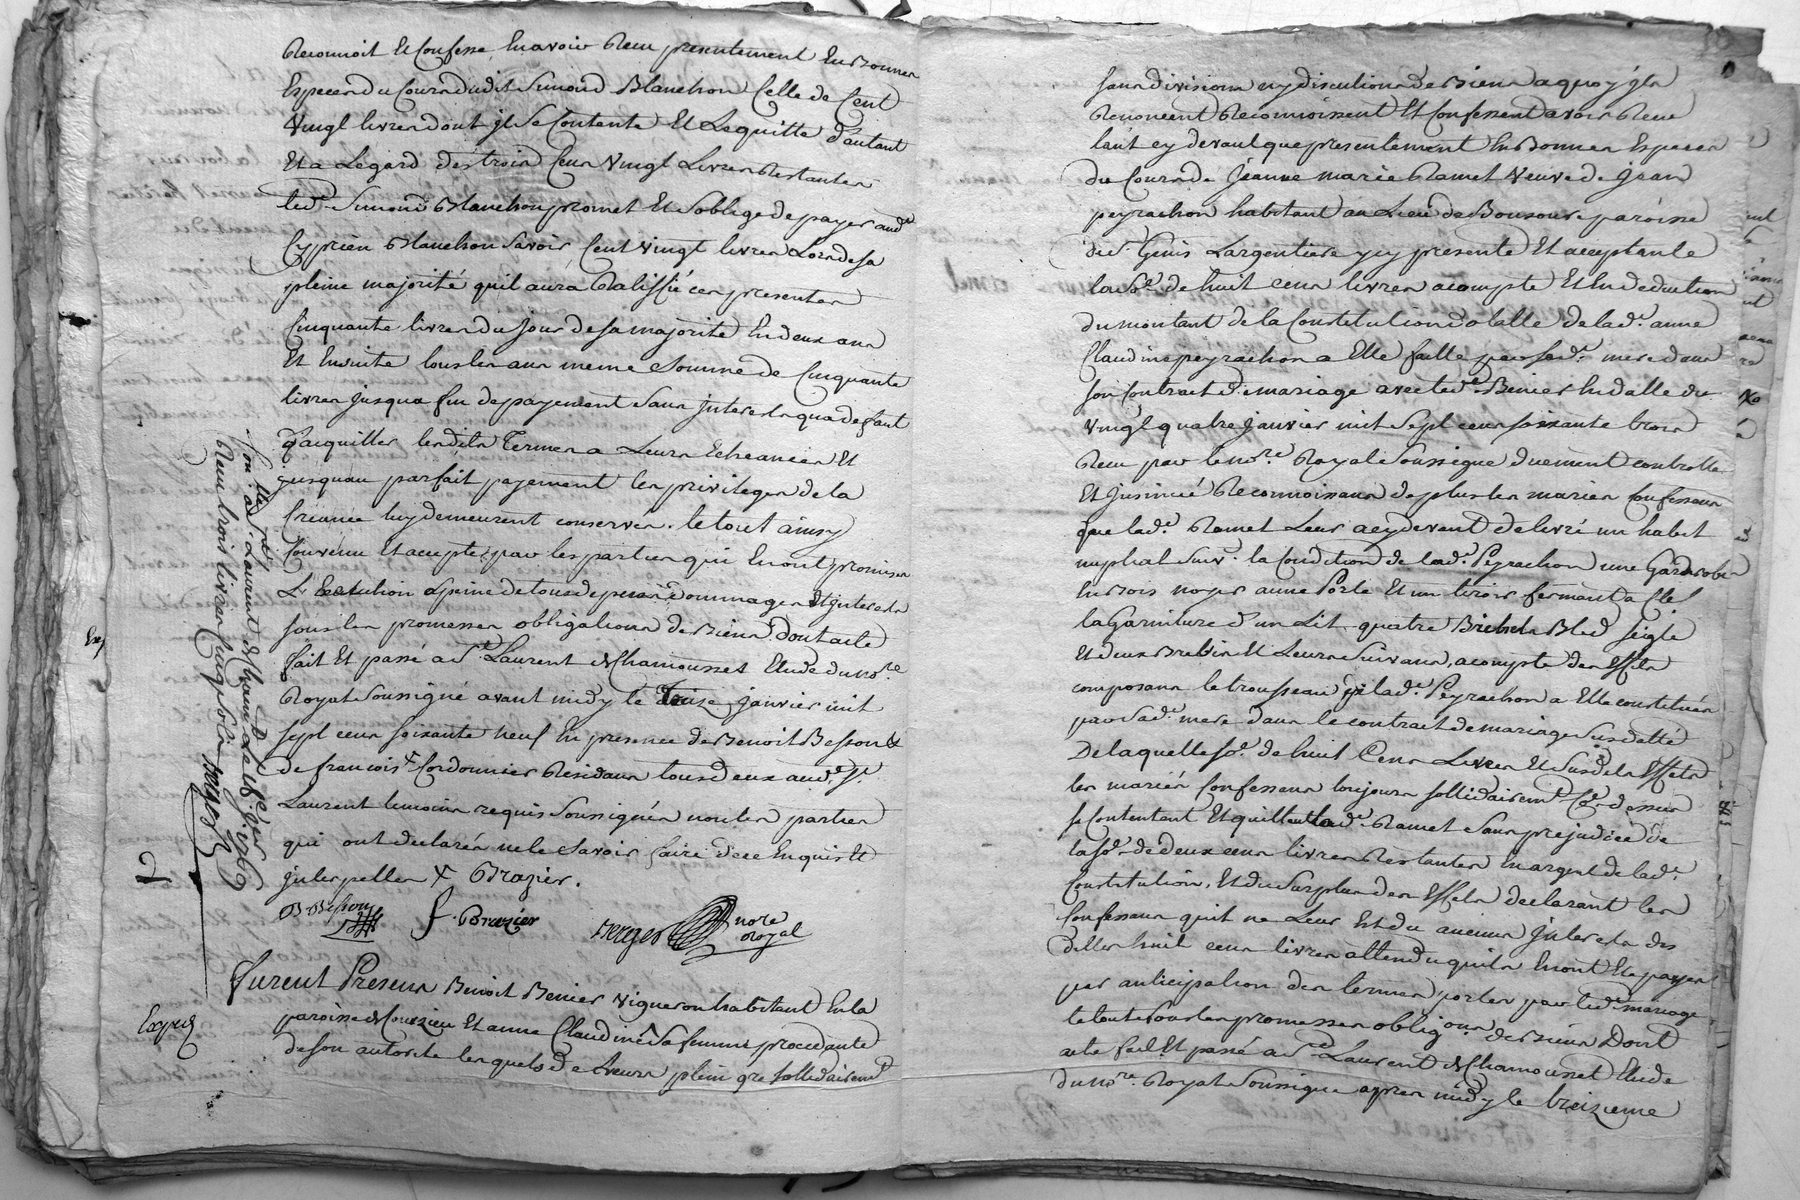 Reconnoit Et Confesse, En avoir Reçu presentement En Bonnes
Especes du Cours dudit Simond Blanchon Celle de Cent
Vingt livres dont jl Se Contente Et Le quitte d'autant
Et a Légard des trois Cens Vingt Livres Restantes
led. Simond Blanchon promet Et S'oblige de payer aud.
Cyprien Blanchon Savoir, Cent vingt livres Lors de sa
pleine majorité qu'il aura Ratiffié ces presentes
Cinquante livres du jour de sa majorité En deux ans
Et Ensuite tous les ans meme Somme de Cinquante
livres jusqua fin de payement Sans jnterets qua defaut
d'acquitter lesdits Termes a Leurs Echeances Et
jusquau parfait payement les privileges de la
Créance luy demeurent conservés. le tout ainsy
Convenu Et accepté par les parties qui En ont promis
L'Execution a peine de tous depens Dommages Et jnterets
sous les promesses obligations de Biens Dont acte
fait Et passé a St. Laurent de Chamousset Etude du no.re
Royal Soussigné avant midy le Treize janvier mil
sept cens soixante neuf En presence de Benoit Besson &
de francois + Cordonnier Residans tous deux aud. St.
Laurent temoins requis Soussignés non les parties
qui ont declarés ne le Savoir faire de ce Enquis Et
jnterpellés + Brazier.
B. Besson f. Brazier Berger no.re Royal
Con.lé a St. Laurent de Cham. le 23 janvier 1769
Reçu trois livres Cinq sols Berger
2
Exp
Furent Presens Benoit Benier vigneron habitant En la
Exped
paroisse de Courzieu Et anne Claudine sa femme procedante
de son autorité lesquels de Leurs plein gré Sollidairemt.
sans division ny discution de Biens a quoy jls
Renoncent Reconnoissent Et Confessent avoir Reçu
tant cy devant que presentement En Bonnes Especes
du Cours de Jeanne marie Ramet veuve de Jean
peyrachon habitant au Lieu de Bousoure paroisse
de St. Genis Largentiere y cy presente Et acceptante
la So.e de huit cens livres a compte Et En deduction
du montant de la Constitution dotalle de lad. anne
Claudine peyrachon a Elle faitte par sad. mere dans
son Contrat de mariage avec led. Benier En datte du
vingt quatre janvier mil sept cens soixante trois
Reçu par le no.re Royal Soussigné duement controllé
Et jnsinué Reconnoissans de plus les mariés Confessans
que lad. Ramet Leur a cy devant delivré un habit
nuptial Suiv. la Condition de lad. Peyrachon une Garderobe
En Bois noyer a une Porte Et un tiroir fermant a Clef
la Garniture d'un Lit quatre Bichets Bled seigle
Et deux Brebis Et Leurs Suivans, a compte des Effets
composans le trousseau que lad. Peyrachon a Elle constitués
par sad. mere dans le contrat de mariage Susdatté
De laquelle so.e de huit Cens Livres Et Susdits Effets
les mariés Confessans toujours sollidairemt. Co.e dessus
se Contentent Et quittent lad. Ramet Sans prejudice de
la so.e de deux cens livres Restantes En argent de lad.
Constitution, Et du Surplus des Effets declarant les
Confessans qu'il ne Leur Est du aucuns jnterets des
dittes huit cens livres attendu qu'ils En ont Eté payés
par anticipation des termes portés par led. mariage
le tout sous les promesses oblig.ons de Biens Dont
acte fait Et passé a St. Laurent de Chamousset Etude
du no.re Royal Soussigné apres midy le treizieme